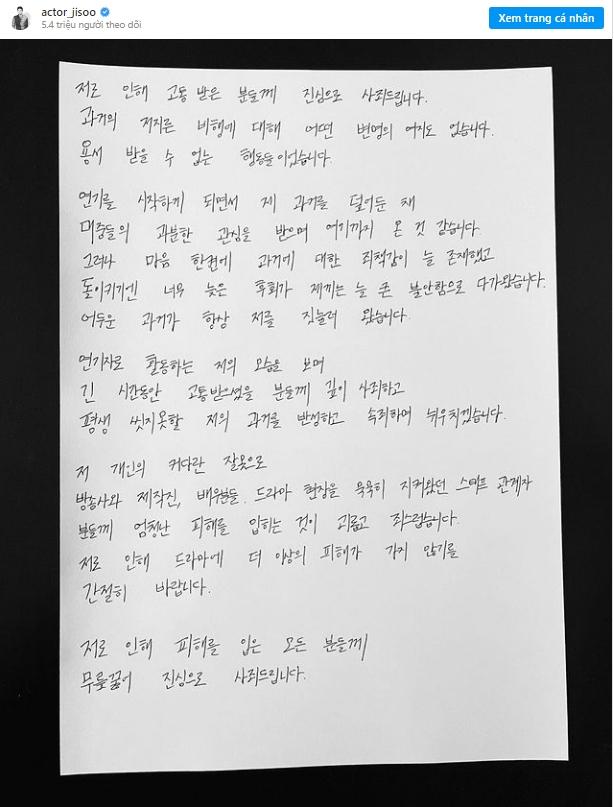 actor_jisoo
5.4 triệu người theo dõi
Xem trang cá nhân
저로 인해 고통 받은 분들께 진심으로 사죄드립니다.
과거의 저지른 비행에 대해 어떤 변명의 여지도 없습니다.
용서 받을 수 없는 행동들이었습니다.
연기를 시작하게 되면서 제 과거를 덮어둔 채
대중들의 과분한 관심을 받으며 여기까지 온 것 같습니다.
그러나 마음 한편에 과거에 대한 죄책감이 늘 존재했고
돌이키기엔 너무 늦은 후회가 제게는 늘 큰 불안함으로 다가왔습니다.
어두운 과거가 항상 저를 짓눌러 왔습니다.
연기자로 활동하는 저의 모습을 보며
긴 시간동안 고통 받으셨을 분들께 깊이 사죄하고
평생 씻지못할 저의 과거를 반성하고 속죄하며 뉘우치겠습니다.
저 개인의 커다란 잘못으로
방송사와 제작진, 배우분들, 드라마 현장을 묵묵히 지켜왔던 스태프 관계자
분들께 엄청난 피해를 입히는 것이 괴롭고 죄스럽습니다.
저로 인해 드라마에 더 이상의 피해가 가지 않기를
간절히 바랍니다.
저로 인해 피해를 입은 모든 분들께
무릎꿇어 진심으로 사죄드립니다.